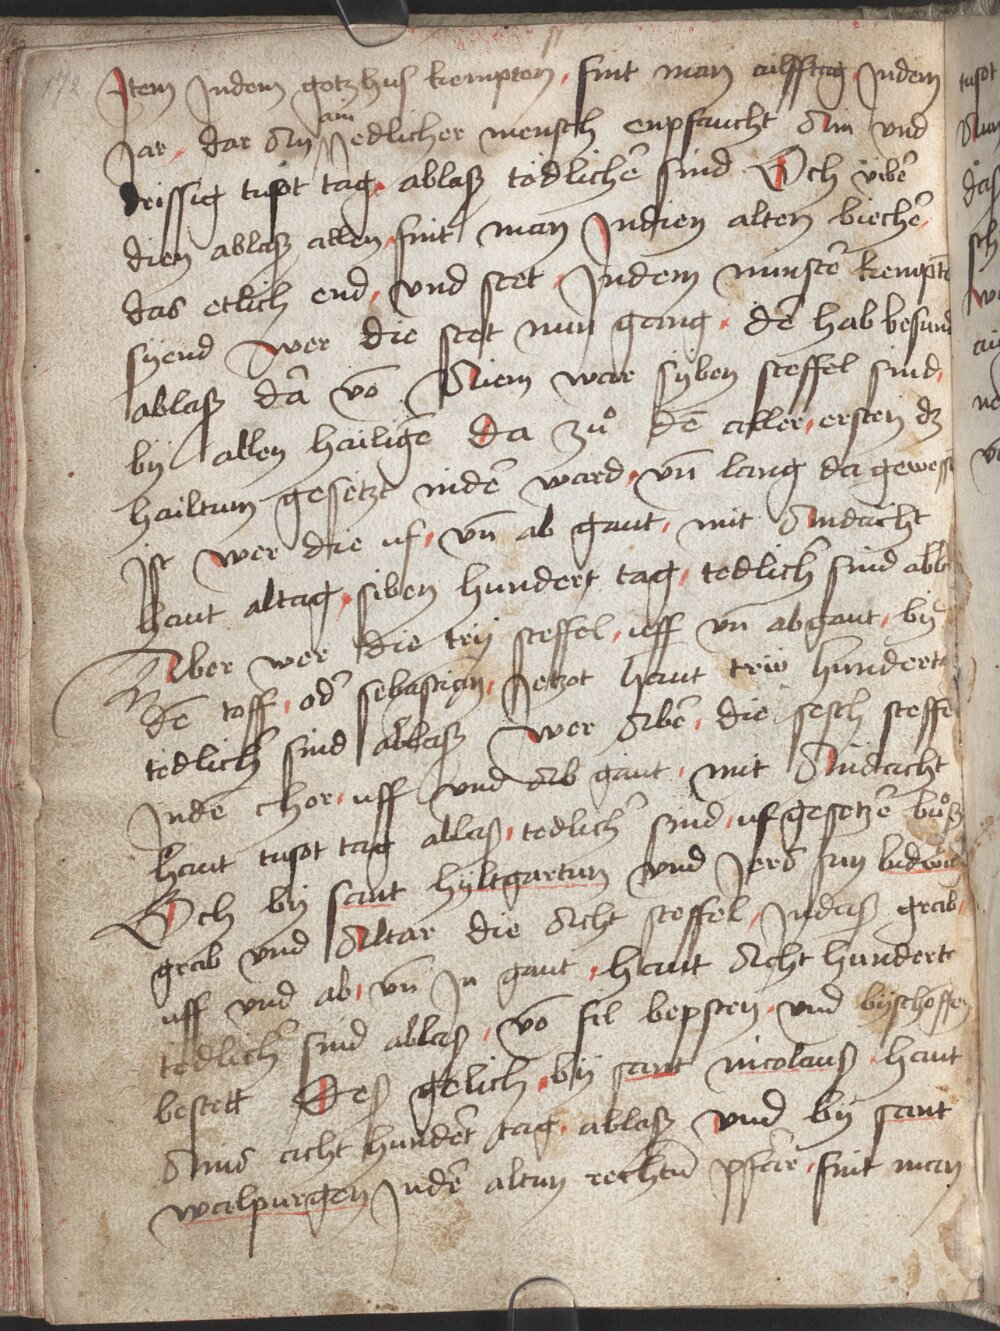 172
Item Indem gotzhus kempten, fint man ailfftag Indem
Jar, dar An ain Jedlicher mensch enpfaucht Ain und
drissig tusot tag, ablaß tödlichē sind Och übē
dien ablaß allen, fint man Indien alten biechē,
das etlich end, und stet, Indem münstē kempte
syend wer die stet nun gang, dē hab besund
ablaß dā vō Niem war syben steffel sind,
by allen hailigē da zuͦ dē aller, ersten dz
hailtum gesetzt nidē ward, vn̄ lang da gewess
Ist wer die uf, vn̄ ab gaut, mit Andacht
haut altag, siben hundert tag, tedlich sind abl
Aber wer die try steffel, uff vn̄ abgaut, by
dē toff, od sebastian, Jetzot haut triv hundert
tedlich sind ablaß wer Abē, die sesch steffe
Inde chor, uff und Ab gaut, mit Andacht
haut tusot tag ablaß, tedlich sind, uf gesetzē buͦß
Och by sant hyltgartun und
grab und Altar die Acht steffel, grab,
uff und ab, vn̄ In gaut, haut Acht hundert
tedlich sind ablaß, vō fil bepsten, und byschoffen
bestett Deß gelich, by sant nicolauß, haut
acht hundēt tag, ablaß und by sant
walpurgen Indē altun rechen pfar, fint man